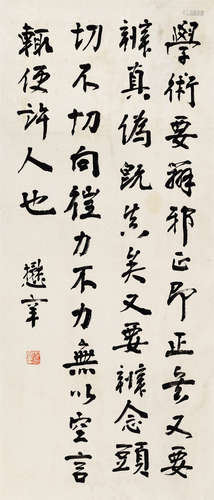 學術要辨邪正即正矣又要
辨真偽既真矣又要辨念頭
切不切向往力不力無以空言
輒便許人也
懋宰